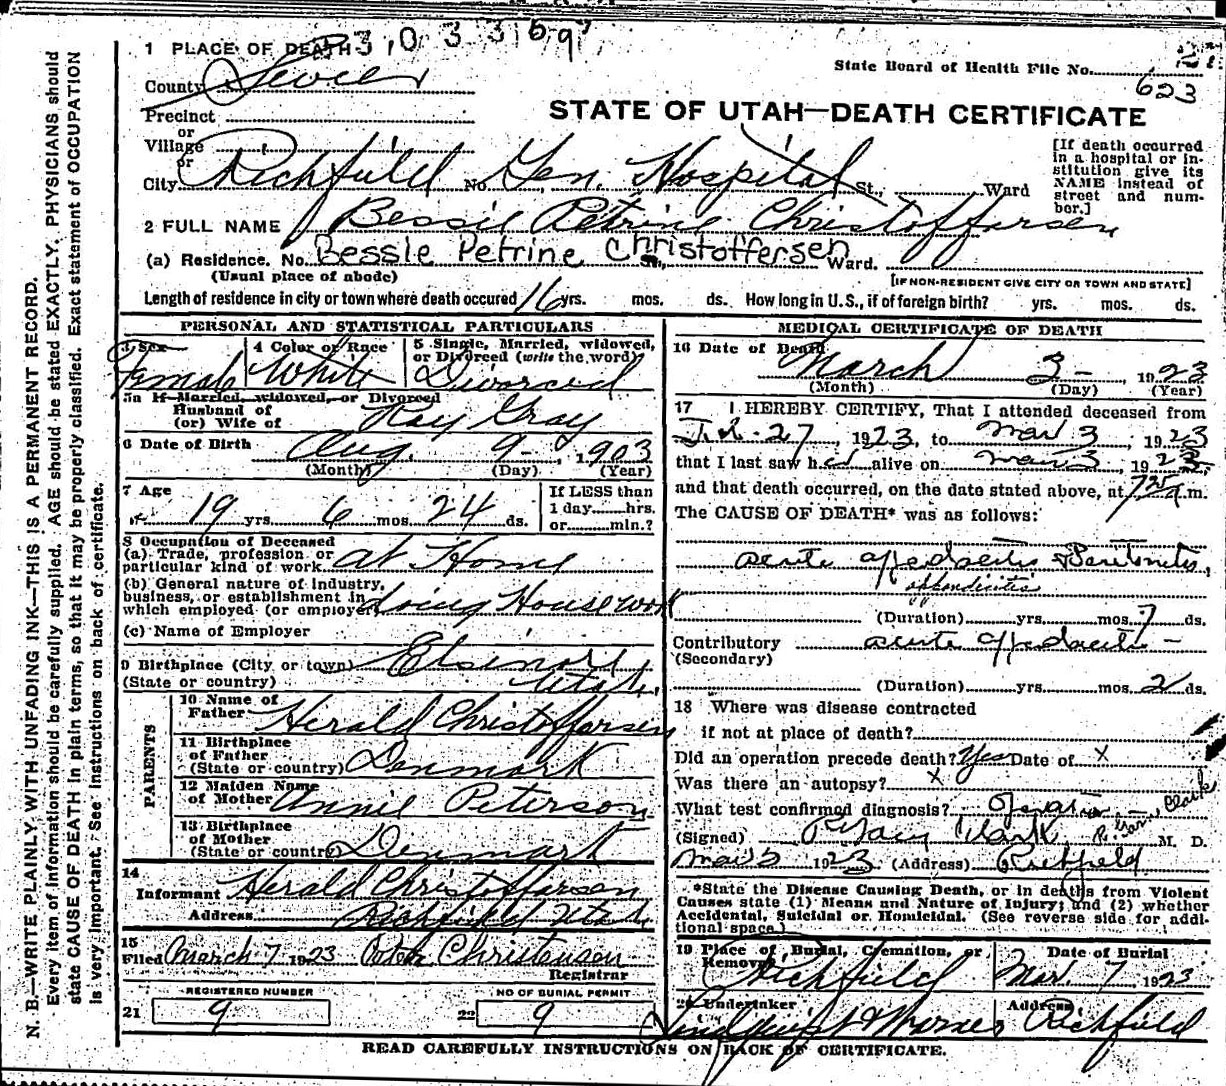 3,033,697
1 PLACE OF DEATH
State Board of Health File No.
County Sevier
623
Precinct
STATE OF UTAH—DEATH CERTIFICATE
or
Village
or
City Richfield No. Gen. Hospital St., Ward
[If death occurred in a hospital or institution give its NAME instead of street and number.]
2 FULL NAME Bessie Petrine Christoffersen
Bessie Petrine Christoffersen
(a) Residence. No. St., Ward.
(Usual place of abode)
[IF NON-RESIDENT GIVE CITY OR TOWN AND STATE]
Length of residence in city or town where death occured 16 yrs. mos. ds. How long in U.S., if of foreign birth? yrs. mos. ds.
PERSONAL AND STATISTICAL PARTICULARS
3 Sex Female
4 Color or Race White
5 Single, Married, widowed, or Divorced (write the word) Divorced
5a If Married, widowed, or Divorced
Husband of
(or) Wife of Ray Gray
6 Date of Birth Aug. 9- 1903
(Month) (Day) (Year)
7 Age
19 yrs. 6 mos. 24 ds.
If LESS than
1 day hrs.
or min.?
8 Occupation of Deceased
(a) Trade, profession or
particular kind of work at Home
(b) General nature of industry,
business, or establishment in
which employed (or employer) doing Housework
(c) Name of Employer
9 Birthplace (City or town) Elsinore
(State or country) Utah.
PARENTS
10 Name of
Father Herald Christoffersen
11 Birthplace
of Father
(State or country) Denmark
12 Maiden Name
of Mother Annie Peterson
13 Birthplace
of Mother
(State or country) Denmark
14
Informant Herald Christoffersen
Address Richfield Utah
15
Filed March 7 1923 Christensen
Registrar
REGISTERED NUMBER
21 9
NO OF BURIAL PERMIT
22 9
MEDICAL CERTIFICATE OF DEATH
16 Date of Death
March 3- 1923
(Month) (Day) (Year)
17 I HEREBY CERTIFY, That I attended deceased from
Feb. 27, 1923, to Mar 3, 1923
that I last saw her alive on Mar 3 1923
and that death occurred, on the date stated above, at m.
The CAUSE OF DEATH* was as follows:
acute apedacitis & Peritonitis,
appendicitis
(Duration) yrs. mos. 7 ds.
Contributory acute apedacitis -
(Secondary)
(Duration) yrs. mos. 2 ds.
18 Where was disease contracted
if not at place of death?
Did an operation precede death? Yes Date of X
Was there an autopsy? X
What test confirmed diagnosis? Operation
(Signed) Clark M. D.
Mar 5 1923 (Address) Richfield
*State the Disease Causing Death, or in deaths from Violent
Causes state (1) Means and Nature of Injury; and (2) whether
Accidental, Suicidal or Homicidal. (See reverse side for additional space.)
19 Place of Burial, Cremation, or
Removal Richfield
Date of Burial
Mar. 7 1923
20 Undertaker
Address
Richfield
READ CAREFULLY INSTRUCTIONS ON BACK OF CERTIFICATE.
N. B.—WRITE PLAINLY, WITH UNFADING INK—THIS IS A PERMANENT RECORD.
Every item of information should be carefully supplied. AGE should be stated EXACTLY. PHYSICIANS should
state CAUSE OF DEATH in plain terms, so that it may be properly classified. Exact statement of OCCUPATION
is very important. See instructions on back of certificate.